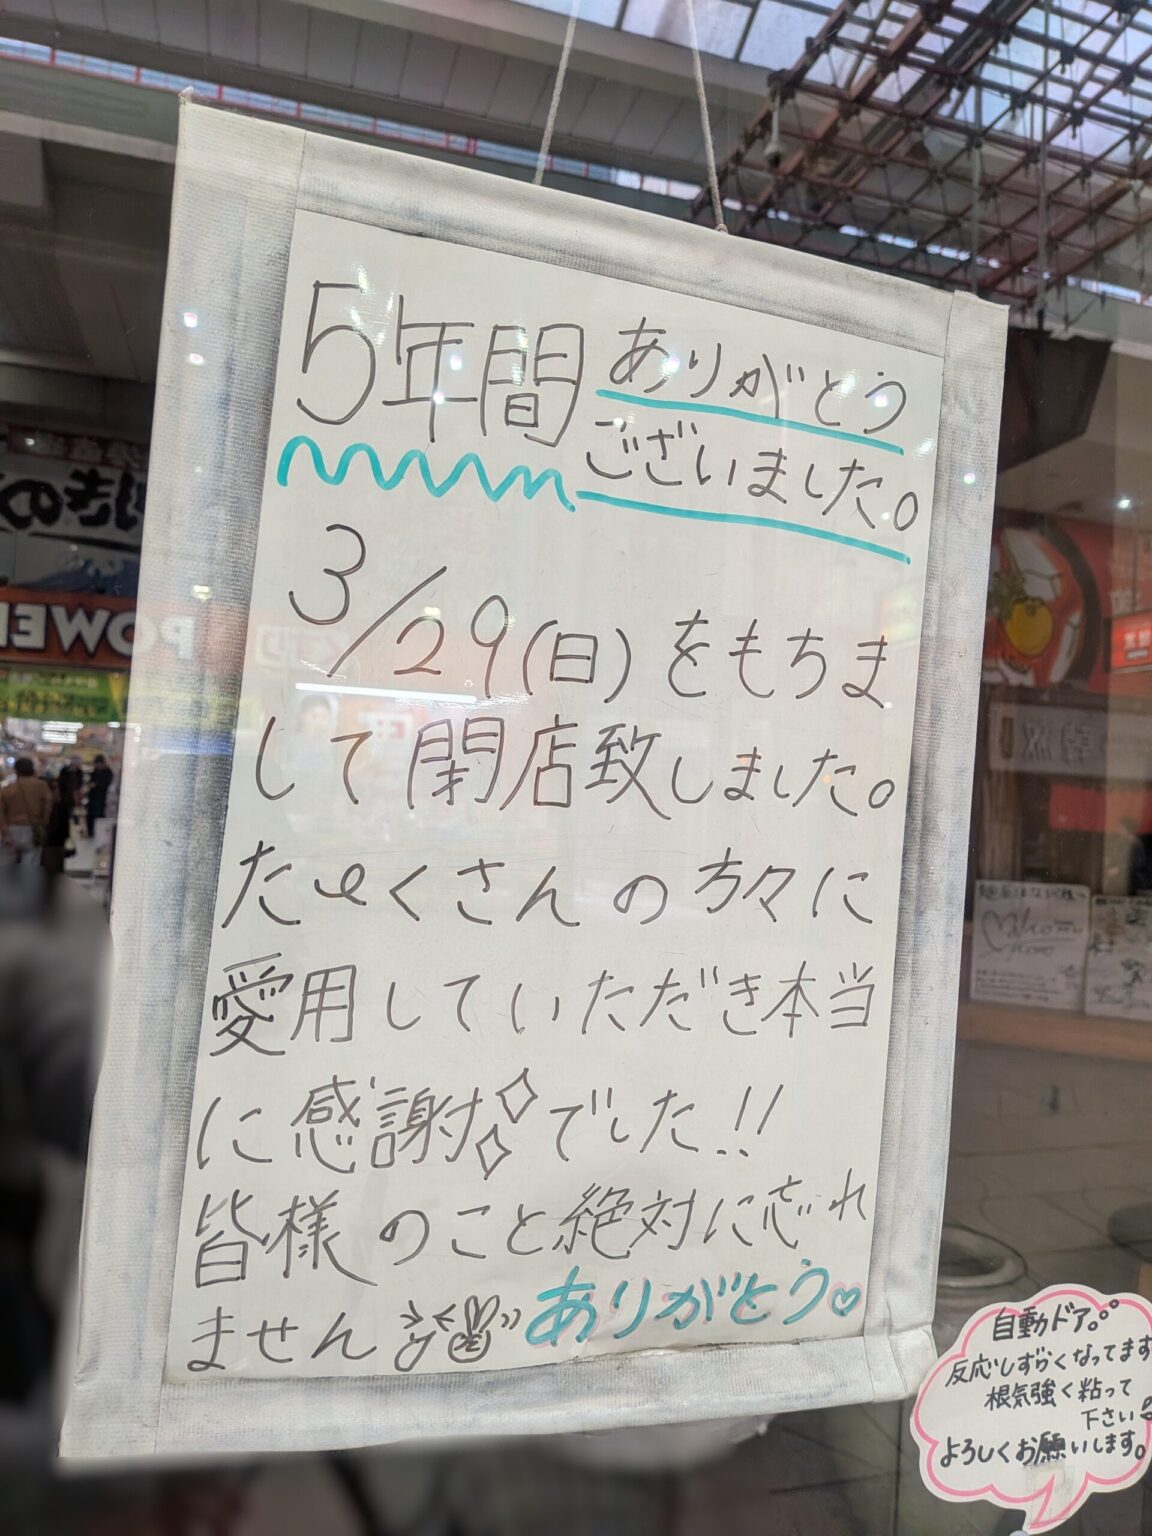 5年間ありがとう
ございました。
3/29(日)をもちま
して閉店致しました。
たくさんの方々に
愛用していただき本当
に感謝でした!!
皆様のこと絶対に忘れ
ません ありがとう♡
自動ドア。
反応しずらくなってます
根気強く粘って
下さい
よろしくお願いします。
POWE